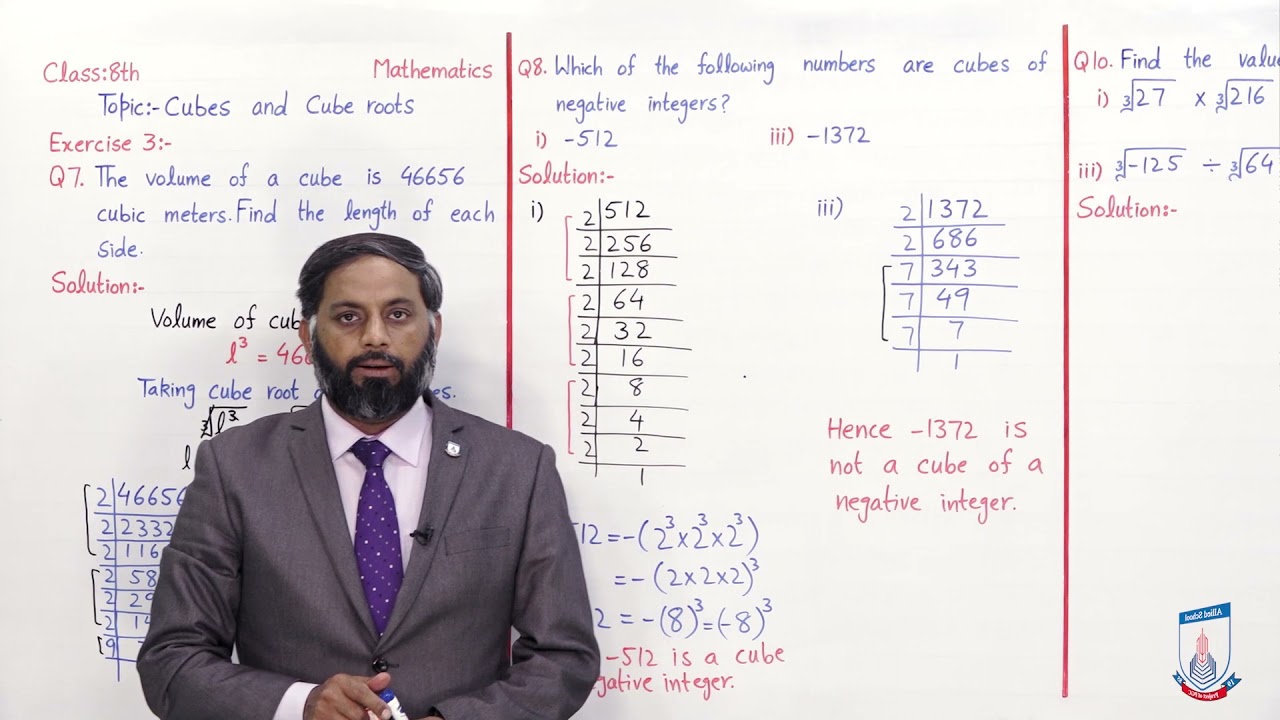 Class:8th Mathematics
Topic:- Cubes and Cube roots
Exercise 3:-
Q7. The volume of a cube is 46656
cubic meters. Find the length of each
side.
Solution:-
Volume of
l³ =
Taking cube root
∛l³
l
2 46656
2
2
2
2
2
9
Q8. Which of the following numbers are cubes of
negative integers?
i) -512 iii) -1372
Solution:-
i)
2 512
2 256
2 128
2 64
2 32
2 16
2 8
2 4
2 2
1
12 = -(2³×2³×2³)
= -(2×2×2)³
2 = -(8)³ = (-8)³
-512 is a cube
negative integer.
iii)
2 1372
2 686
7 343
7 49
7 7
1
Hence -1372 is
not a cube of a
negative integer.
Q10. Find the
i) ∛27 × ∛216
iii) ∛-125 ÷ ∛64
Solution:-
Allied School
Project of PGC